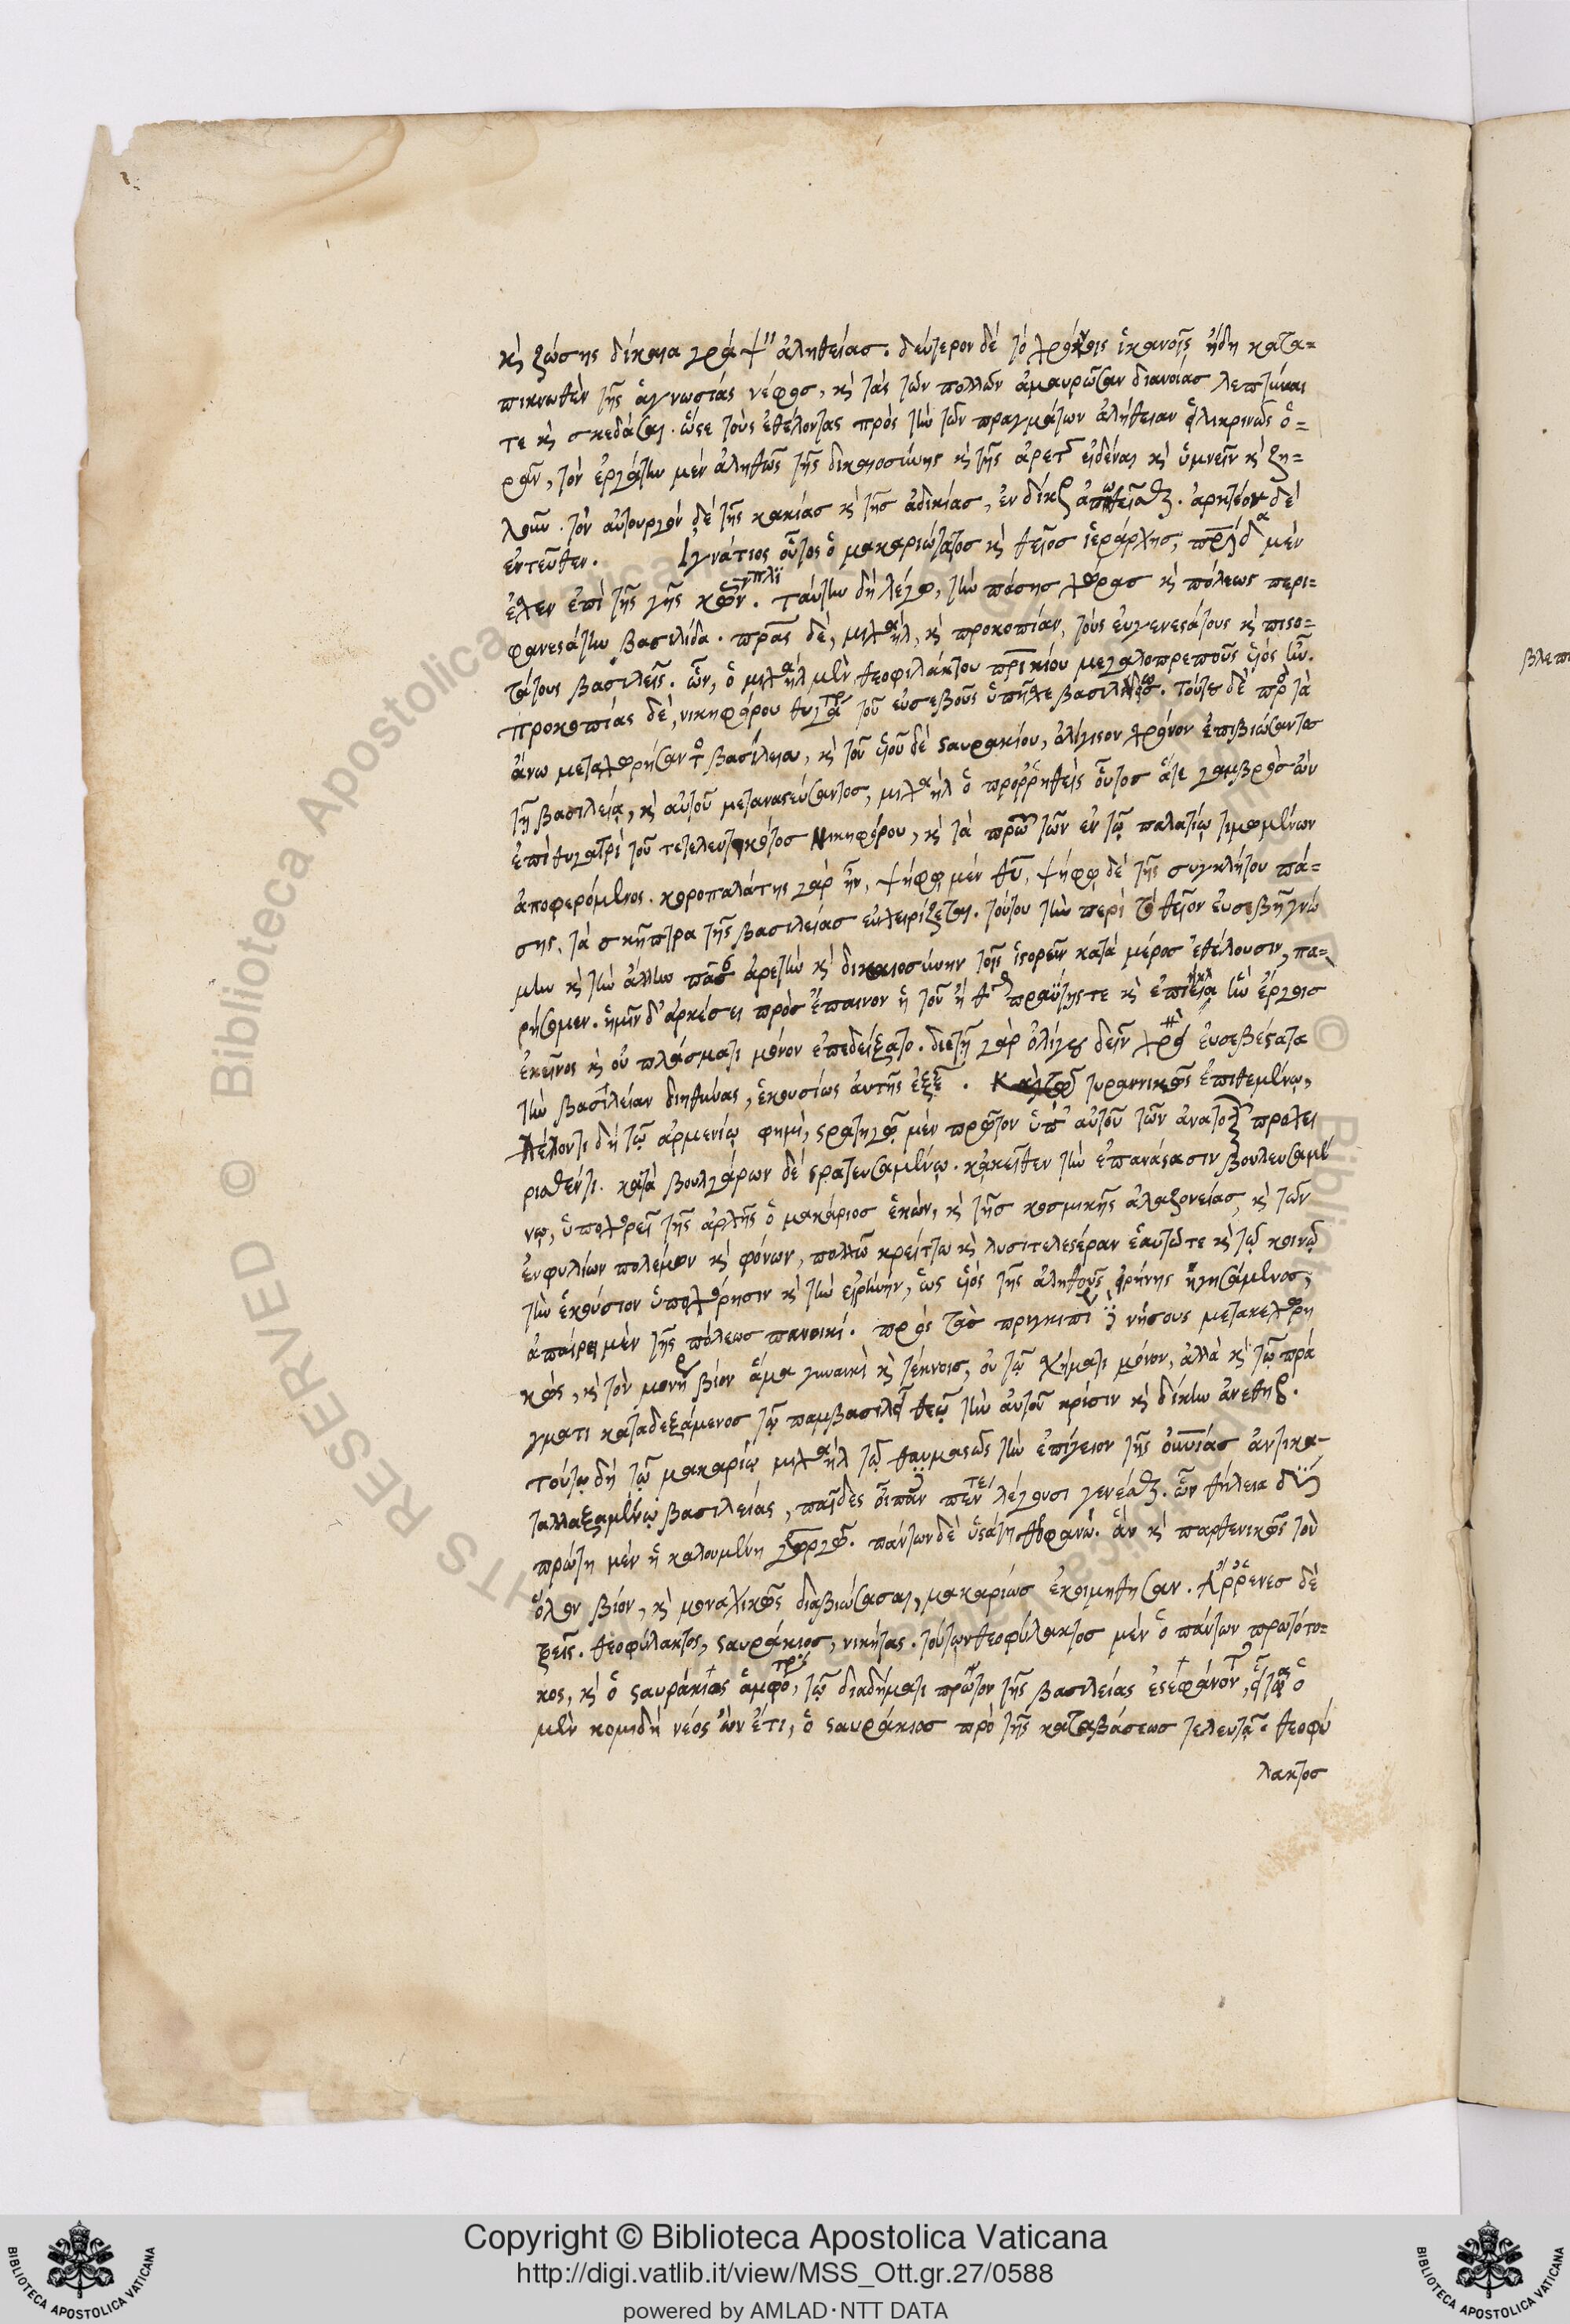 κὶ ζώσης δίκαια γράψ" ἀληθείας. δεύτερον δὲ τὸ χρόνοις ἱκανοῖς ἤδη κατα=
πυκνωθὲν τῆς ἀγνωσίας νέφος, κὶ τὰς τῶν πολλῶν ἀμαυρῶσαν διανοίας λεπτύναι
τε κὶ σκεδάσαι. ὥστε τοὺς ἐθέλοντας πρὸς τὴν τῶν πραγμάτων ἀλήθειαν εἰλικρινῶς ὁ=
ρᾶν, τὸν ἐργάτην μὲν ἀληθῶς τῆς δικαιοσύνης κὶ τῆς ἀρετ εἰδέναι κὶ ὑμνεῖν κὶ ζη=
λοῦν. τὸν αὐτουργὸν δὲ τῆς κακίας κὶ τῆς ἀδικίας, ἐν δίκῃ δὲ
ἐντεῦθεν. Ἰγνάτιος οὗτος ὁ μακαριώτατος κὶ θεῖος ἱεράρχης, πρίδα μὲν
ἔσχεν ἐπὶ τῆς γῆς κων̅πλϊ. ταύτην δὴ λέγω, τὴν πάσης χώρας κὶ πόλεως περι=
φανεστάτην βασιλίδα. πρας δὲ, μιχαὴλ, κὶ προκοπίαν, τοὺς εὐγενεστάτους κὶ πιστο=
τάτους βασιλεῖς. ὧν, ὁ μιχαὴλ μὲν θεοφιλάκτου πρικίου μεγαλοπρεποῦς υἱὸς ἦν.
προκοπίας δὲ, νικηφόρου θυγάτρ τοῦ εὐσεβοῦς ὑπῆρχε βασιλέως. τούτου δὲ πρὸ τὰ
ἄνω μεταχωρήσαντο βασίλεια, κὶ τοῦ υἱοῦ δὲ σταυρακίου, ὀλίγιστον χρόνον ἐπιβιώσαντος
τῇ βασιλείᾳ, κὶ αὐτοῦ μεταναστεύσαντος, μιχαὴλ ὁ προρρηθεὶς οὗτος ἅτε γαμβρὸς ὢν
ἐπὶ θυγατρὶ τοῦ τετελευτηκότος Νικηφόρου, κὶ τὰ πρῶτ τῶν ἐν τῷ παλατίῳ τιμωμένων
ἀποφερόμενος. κοροπαλάτης γὰρ ἦν, ψήφῳ μὲν θυ, ψήφῳ δὲ τῆς συγκλήτου πά=
σης, τὰ σκῆπτρα τῆς βασιλείας ἐγχειρίζεται. τούτου τὴν περὶ τὸ θεῖον εὐσεβῆ γνώ
μην κὶ τὴν ἄλλην πᾶσ ἀρετὴν κὶ δικαιοσύνην τοῖς ἱστορεῖν κατὰ μέρος ἐθέλουσιν, πα=
ρήσομεν. ἡμῖν δ' ἀρκέσει πρὸς ἔπαινον ἢ τοῦ ἤθους πραΰτης τε κὶ ἐπιείκεια ἣν ἔργοις
ἐκεῖνος κὶ οὐ πλάσματι μόνον ἐπεδείξατο. διετῆ γὰρ ὀλίγου δεῖν χρό εὐσεβέστατα
τὴν βασιλείαν διηθύνας, ἑκουσίως αὐτῆς ἐξ . τυραννικῶς ἐπιθεμένῳ,
λέοντι δὴ τῷ ἀρμενίῳ φημὶ, στρατηγῷ μὲν πρῶτον ὑπ' αὐτοῦ τῶν ἀνατολ προχει
ρισθέντι. κατὰ βουλγάρων δὲ στρατευσαμένῳ. κἀκεῖθεν τὴν ἐπανάστασιν βουλευσαμέ
νῳ, ὑποχωρεῖ τῆς ἀρχῆς ὁ μακάριος ἑκὼν, κὶ τῆς κοσμικῆς ἀλαζονείας, κὶ τῶν
ἐνφυλίων πολέμων κὶ φόνων, πολλῷ κρείττω κὶ λυσιτελεστέραν ἑαυτῷ τε κὶ τῷ κοινῷ
τὴν ἑκούσιον ὑποχώρησιν κὶ τὴν εἰρήνην, ὡς υἱὸς τῆς ἀληθοῦς εἰρήνης ἡγησάμενος,
ἀπαίρει μὲν τῆς πόλεως πανοικί. πρὸς τὰς πριγκιπί νήσους μετακεχωρη
κὼς, κὶ τὸν μονή βίον ἅμα γυναικὶ κὶ τέκνοις, οὐ τῷ σχήματι μόνον, ἀλλὰ κὶ τῷ πρά
γματι καταδεξάμενος τῷ παμβασιλεῖ θεῷ τὴν αὐτοῦ κρίσιν κὶ δίκην ἀνεθη.
τούτῳ δὴ τῷ μακαρίῳ μιχαὴλ τῷ θαυμαστῶς τὴν ἐπίγειον τῆς οὐνίας ἀντικα-
ταλλαξαμένῳ βασιλείας, παῖδες οἱ πᾶν πέντε λέγουσι γενέσθαι. ὧν θήλεια δύο
πρώτη μὲν ἡ καλουμένη γεωργώ. πάντων δὲ ὑστάτη θεοφανώ. ἃν κὶ παρθενικῶς τὸν
ὅλον βίον, κὶ μοναχικῶς διαβιώσασαι, μακαρίως ἐκοιμήθησαν. Ἄρρενες δὲ
τρεῖς. θεοφύλακτος, σταυράκιος, νικήτας. τούτων θεοφύλακτος μὲν ὁ πάντων πρωτότο=
κος, κὶ ὁ σταυράκιος ἀμφότρ, τῷ διαδήματι πρῶτον τῆς βασιλείας ἐστεφάνοντ, ὁ
μὲν κομιδῇ νέος ὢν ἔτι, ὁ σταυράκιος πρὸ τῆς καταβάσεως τελευτᾷ. θεοφύ
λακτος
βλεπ
Copyright © Biblioteca Apostolica Vaticana
http://digi.vatlib.it/view/MSS_Ott.gr.27/0588
powered by AMLAD·NTT DATA
BIBLIOTECA APOSTOLICA VATICANA
BIBLIOTECA APOSTOLICA VATICANA